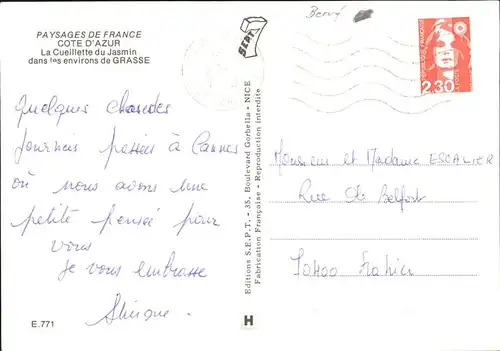 PAYSAGES DE FRANCE
COTE D'AZUR
La Cueillette du Jasmin
dans les environs de GRASSE
Quelques chaudes
journées passées à Cannes
où nous avons une
petite pensée pour
vous
Je vous embrasse
E.771
SEPT
Editions S.E.P.T. - 35, Boulevard Gorbella - NICE
Fabrication Française - Reproduction interdite
H
REPUBLIQUE FRANCAISE
2,30
Monsieur et Madame ESCALIER
Rue de Belfort
70400 Frahier